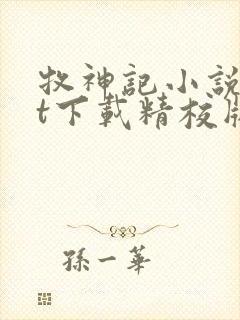 牧神記小說
t下載精校版
孫一華